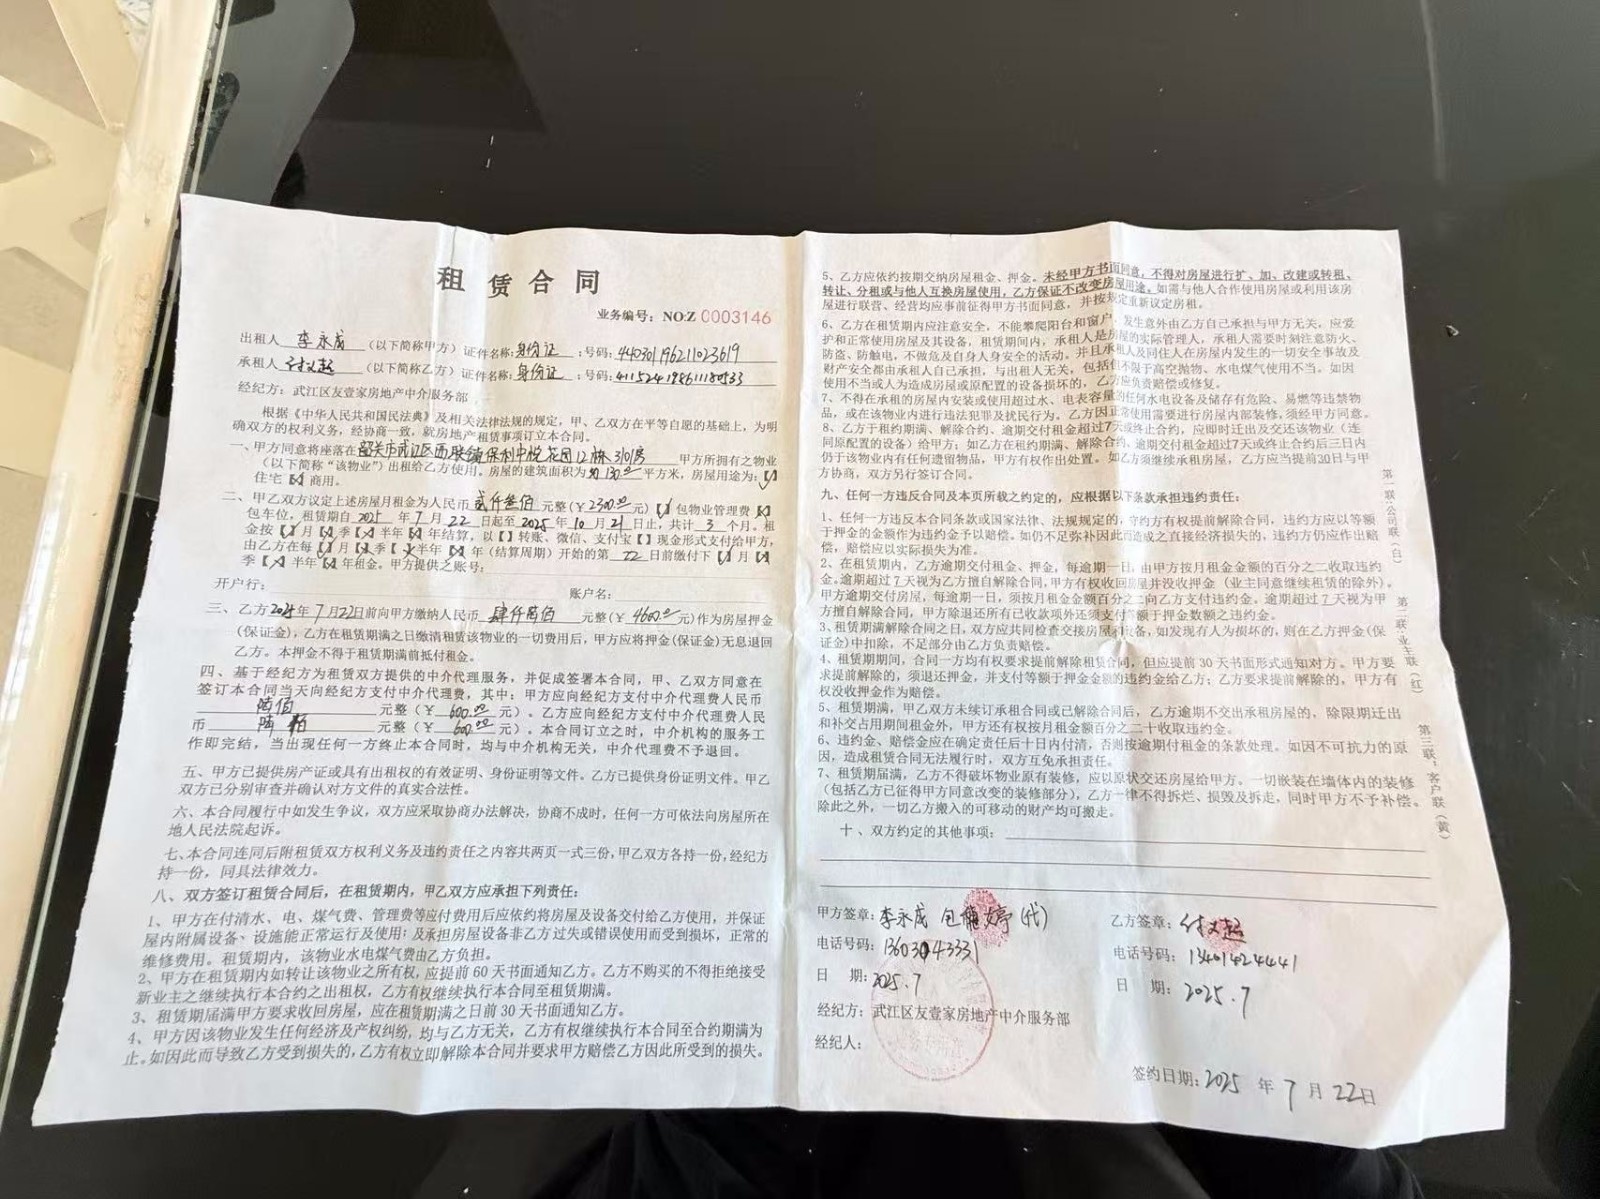 租赁合同
业务编号：NO:Z 0003146
出租人 李永成 （以下简称甲方）证件名称：身份证 ；号码：440301196211023619
承租人 付文超 （以下简称乙方）证件名称：身份证 ；号码：
经纪方：武江区友壹家房地产中介服务部
根据《中华人民共和国民法典》及相关法律法规的规定，甲、乙双方在平等自愿的基础上，为明
确双方的权利义务，经协商一致，就房地产租赁事项订立本合同。
一、甲方同意将座落在 韶关市武江区西联镇保利中悦花园12栋3101号 甲方所拥有之物业
（以下简称“该物业”）出租给乙方使用。房屋的建筑面积为 约130.00 平方米，房屋用途为：【√】
住宅【×】商用。
二、甲乙双方议定上述房屋月租金为人民币 贰仟叁佰 元整（￥2300.00元）【√】包物业管理费【×】
包车位，租赁期自 2025 年 7 月 22 日起至 2025 年 10 月 21 日止，共计 3 个月。租
金按【√】月【×】季【×】半年【×】年结算，以【 】转账、微信、支付宝【 】现金形式支付给甲方，
由乙方在每【√】月【×】季【×】半年【×】年（结算周期）开始的第 22 日前缴付下【√】月【×】
季【×】半年【×】年租金。甲方提供之账号：
开户行： 账户名：
三、乙方2025年7月22日前向甲方缴纳人民币 肆仟陆佰 元整（￥4600.00元）作为房屋押金
(保证金)，乙方在租赁期满之日缴清租赁该物业的一切费用后，甲方应将押金(保证金)无息退回
乙方。本押金不得于租赁期满前抵付租金。
四、基于经纪方为租赁双方提供的中介代理服务，并促成签署本合同，甲、乙双方同意在
签订本合同当天向经纪方支付中介代理费，其中：甲方应向经纪方支付中介代理费人民币
陆佰 元整（￥ 600.00 元）。乙方应向经纪方支付中介代理费人民
币 陆佰 元整（￥ 600.00 元）。本合同订立之时，中介机构的服务工
作即完结，当出现任何一方终止本合同时，均与中介机构无关，中介代理费不予退回。
五、甲方已提供房产证或具有出租权的有效证明、身份证明等文件。乙方已提供身份证明文件。甲乙
双方已分别审查并确认对方文件的真实合法性。
六、本合同履行中如发生争议，双方应采取协商办法解决，协商不成时，任何一方可依法向房屋所在
地人民法院起诉。
七、本合同连同后附租赁双方权利义务及违约责任之内容共两页一式三份，甲乙双方各持一份，经纪方
持一份，同具法律效力。
八、双方签订租赁合同后，在租赁期内，甲乙双方应承担下列责任：
1、甲方在付清水、电、煤气费、管理费等应付费用后应依约将房屋及设备交付给乙方使用，并保证
屋内附属设备、设施能正常运行及使用；及承担房屋设备非乙方过失或错误使用而受到损坏，正常的
维修费用。租赁期内，该物业水电煤气费由乙方负担。
2、甲方在租赁期内如转让该物业之所有权，应提前60天书面通知乙方。乙方不购买的不得拒绝接受
新业主之继续执行本合约之出租权，乙方有权继续执行本合同至租赁期满。
3、租赁期届满甲方要求收回房屋，应在租赁期满之日前30天书面通知乙方。
4、甲方因该物业发生任何经济及产权纠纷，均与乙方无关，乙方有权继续执行本合同至合约期满为
止。如因此而导致乙方受到损失的，乙方有权立即解除本合同并要求甲方赔偿乙方因此所受到的损失。
5、乙方应依约按期交纳房屋租金、押金。未经甲方书面同意，不得对房屋进行扩、加、改建或转租、
转让、分租或与他人互换房屋使用，乙方保证不改变房屋用途。如需与他人合作使用房屋或利用该房
屋进行联营、经营均应事前征得甲方书面同意，并按规定重新议定房租。
6、乙方在租赁期内应注意安全，不能攀爬阳台和窗户，发生意外由乙方自己承担与甲方无关，应爱
护和正常使用房屋及其设备，租赁期间内，承租人是房屋的实际管理人，承租人需要时刻注意防火、
防盗、防触电，不做危及自身人身安全的活动。并且承租人及同住人在房屋内发生的一切安全事故及
财产安全都由承租人自己承担，与出租人无关，包括但不限于高空抛物、水电煤气使用不当。如因
使用不当或人为造成房屋或原配置的设备损坏的，乙方应负责赔偿或修复。
7、不得在承租的房屋内安装或使用超过水、电表容量的任何水电设备及储存有危险、易燃等违禁物
品，或在该物业内进行违法犯罪及扰民行为。乙方因正常使用需要进行房屋内部装修，须经甲方同意。
8、乙方于租约期满、解除合约、逾期交付租金超过7天或终止合约，应即时迁出及交还该物业（连
同原配置的设备）给甲方；如乙方在租约期满、解除合约、逾期交付租金超过7天或终止合约后三日内
仍于该物业内有任何遗留物品，甲方有权作出处置。如乙方须继续承租房屋，乙方应当提前30日与甲
方协商，双方另行签订合同。
九、任何一方违反合同及本页所载之约定的，应根据以下条款承担违约责任：
1、任何一方违反本合同条款或国家法律、法规规定的，守约方有权提前解除合同，违约方应以等额
于押金的金额作为违约金予以赔偿。如仍不足弥补因此而造成之直接经济损失的，违约方仍应作出赔
偿，赔偿应以实际损失为准。
2、在租赁期内，乙方逾期交付租金、押金，每逾期一日，由甲方按月租金金额的百分之二收取违约
金。逾期超过7天视为乙方擅自解除合同，甲方有权收回房屋并没收押金（业主同意继续租赁的除外）。
甲方逾期交付房屋，每逾期一日，须按月租金金额百分之二向乙方支付违约金。逾期超过7天视为甲
方擅自解除合同，甲方除退还所有已收款项外还须支付等额于押金数额之违约金。
3、租赁期满解除合同之日，双方应共同检查交接房屋和设备，如发现有人为损坏的，则在乙方押金(保
证金)中扣除，不足部分由乙方负责赔偿。
4、租赁期期间，合同一方均有权要求提前解除租赁合同，但应提前30天书面形式通知对方。甲方要
求提前解除的，须退还押金，并支付等额于押金金额的违约金给乙方；乙方要求提前解除的，甲方有
权没收押金作为赔偿。
5、租赁期满，甲乙双方未续订承租合同或已解除合同后，乙方逾期不交出承租房屋的，除限期迁出
和补交占用期间租金外，甲方还有权按月租金金额百分之二十收取违约金。
6、违约金、赔偿金应在确定责任后十日内付清，否则按逾期付租金的条款处理。如因不可抗力的原
因，造成租赁合同无法履行时，双方互免承担责任。
7、租赁期届满，乙方不得破坏物业原有装修，应以原状交还房屋给甲方。一切嵌装在墙体内的装修
（包括乙方已征得甲方同意改变的装修部分），乙方一律不得拆烂、损毁及拆走，同时甲方不予补偿。
除此之外，一切乙方搬入的可移动的财产均可搬走。
十、双方约定的其他事项：
甲方签章：李永成 包 婷(代)
电话号码：
日 期：2025.7
经纪方：武江区友壹家房地产中介服务部
经纪人：
乙方签章：付文超
电话号码：13401424441
日 期：2025.7
签约日期：2025 年 7 月 22日
第一联：公司联（白）
第二联：业主联（红）
第三联：客户联（黄）